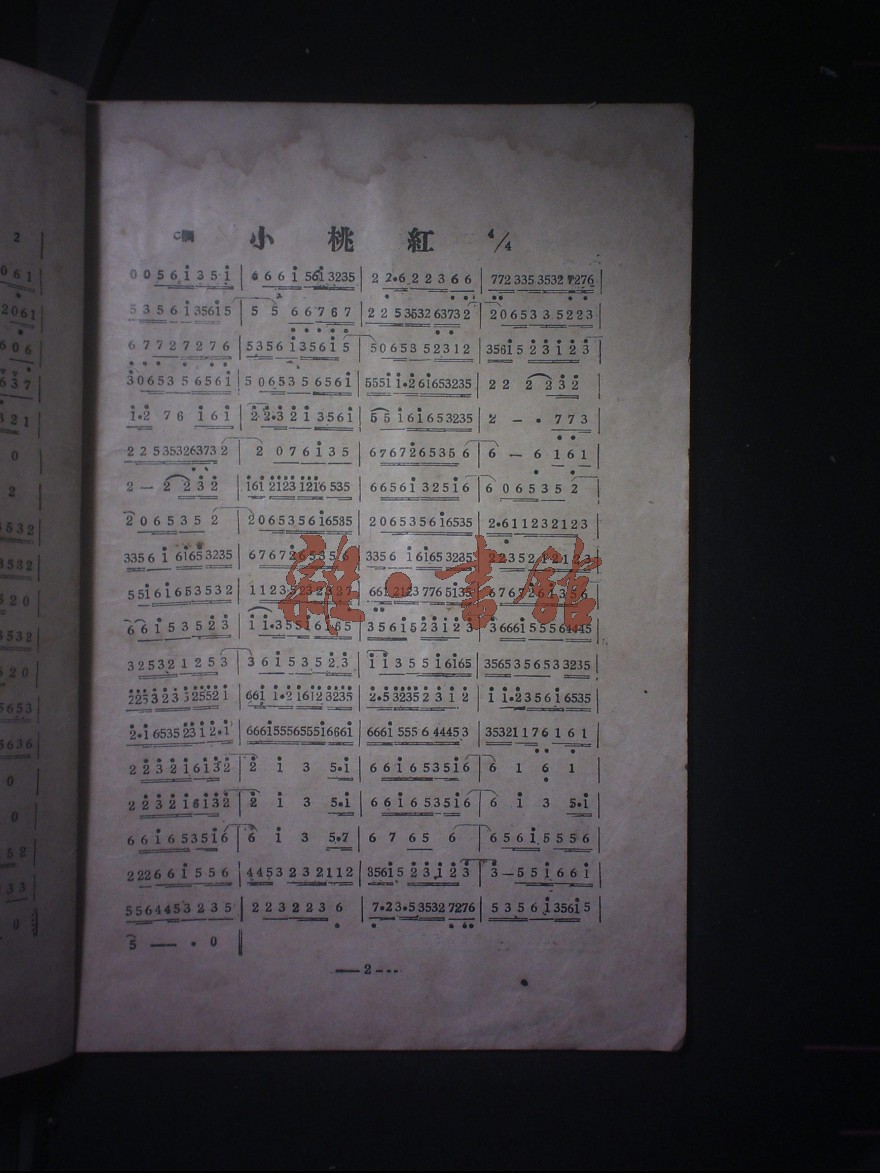 C調 小桃紅 4/4
0 0 5 6 i 3 5 i | 6 6 6 i 56i 3235 | 2 2•6 2 2 3 6 6 | 772 335 3532 7276 |
5 3 5 6 i 356i 5 | 5 5 6 6 7 6 7 | 2 2 5 3532 6373 2 | 2 0 6 5 3 3 5 2 2 3 |
6 7 7 2 7 2 7 6 | 5 3 5 6 i 3 5 6 i 5 | 5 0 6 5 3 5 2 3 1 2 | 356i 5 2 3 i 2 3 |
3 0 6 5 3 5 6 5 6 i | 5 0 6 5 3 5 6 5 6 i | 555i i•2 6i653235 | 2 2 2 2 3 2 |
i•2 7 6 i 6 i | 2 2•3 2 i 3 5 6 i | 5 5 i 6i653235 | 2 — • 7 7 3 |
2 2 5 35326373 2 | 2 0 7 6 i 3 5 | 6 7 6 7 2 6 5 3 5 6 | 6 — 6 1 6 1 |
2 — 2 2 3 2 | i6i 2i23 i2i6 535 | 6 6 5 6 i 3 2 5 i 6 | 6 0 6 5 3 5 2 |
2 0 6 5 3 5 2 | 2 0 6 5 3 5 6 i 6535 | 2 0 6 5 3 5 6 i 6535 | 2•6 1 1 2 3 2 1 2 3 |
335 6 i 6i65 3235 | 6 7 6 7 2 6 5 3 5 6 | 335 6 i 6i65 3235 | 2 2 3 5 2 1 2 1 2 3 |
5 5 i 6 i 6 5 3 5 3 2 | 1 1 2 3 5 2 3 2 3 2 7 | 661 2123 776 5135 | 6 7 6 7 2 6 i 3 5 6 |
6 6 i 5 3 5 2 3 | i i•3 5 5 i 6 i 6 5 | 3 5 6 i 5 2 3 i 2 3 | 3 666i 5 5 5 6 4445 |
3 2 5 3 2 1 2 5 3 | 3 6 i 5 3 5 2•3 | i i 3 5 5 i 6i65 | 3565 3 5 6 5 3 3235 |
225 3 2 3 3 2 5 5 2 i | 66i i•2 i6i2 3235 | 2•5 3235 2 3 i 2 | i i•2 3 5 6 i 6535 |
2•i 6535 23i 2•i | 666i5556555i666i | 666i 555 6 4445 3 | 3532 1 1 7 6 1 6 1 |
2 2 3 2 i 6 i 3 2 | 2 i 3 5•i | 6 6 i 6 5 3 5 i 6 | 6 1 6 1 |
2 2 3 2 i 6 i 3 2 | 2 i 3 5•i | 6 6 i 6 5 3 5 i 6 | 6 i 3 5•i |
6 6 i 6 5 3 5 i 6 | 6 i 3 5•7 | 6 7 6 5 6 | 6 5 6 i 5 5 5 6 |
2 22 6 6 i 5 5 6 | 4453 2 3 2 112 | 356i 5 2 3 i 2 3 | 3 — 5 5 i 6 6 i |
5 5 6 4 4 5 3 2 3 5 | 2 2 3 2 2 3 6 | 7•2 3•5 3532 7276 | 5 3 5 6 i 356i 5
5 — • 0 ‖
—2—
雜•書館
2
061
2061
606
637
321
0
2
5532
3532
520
6532
520
5653
5636
0
0
52
33
0